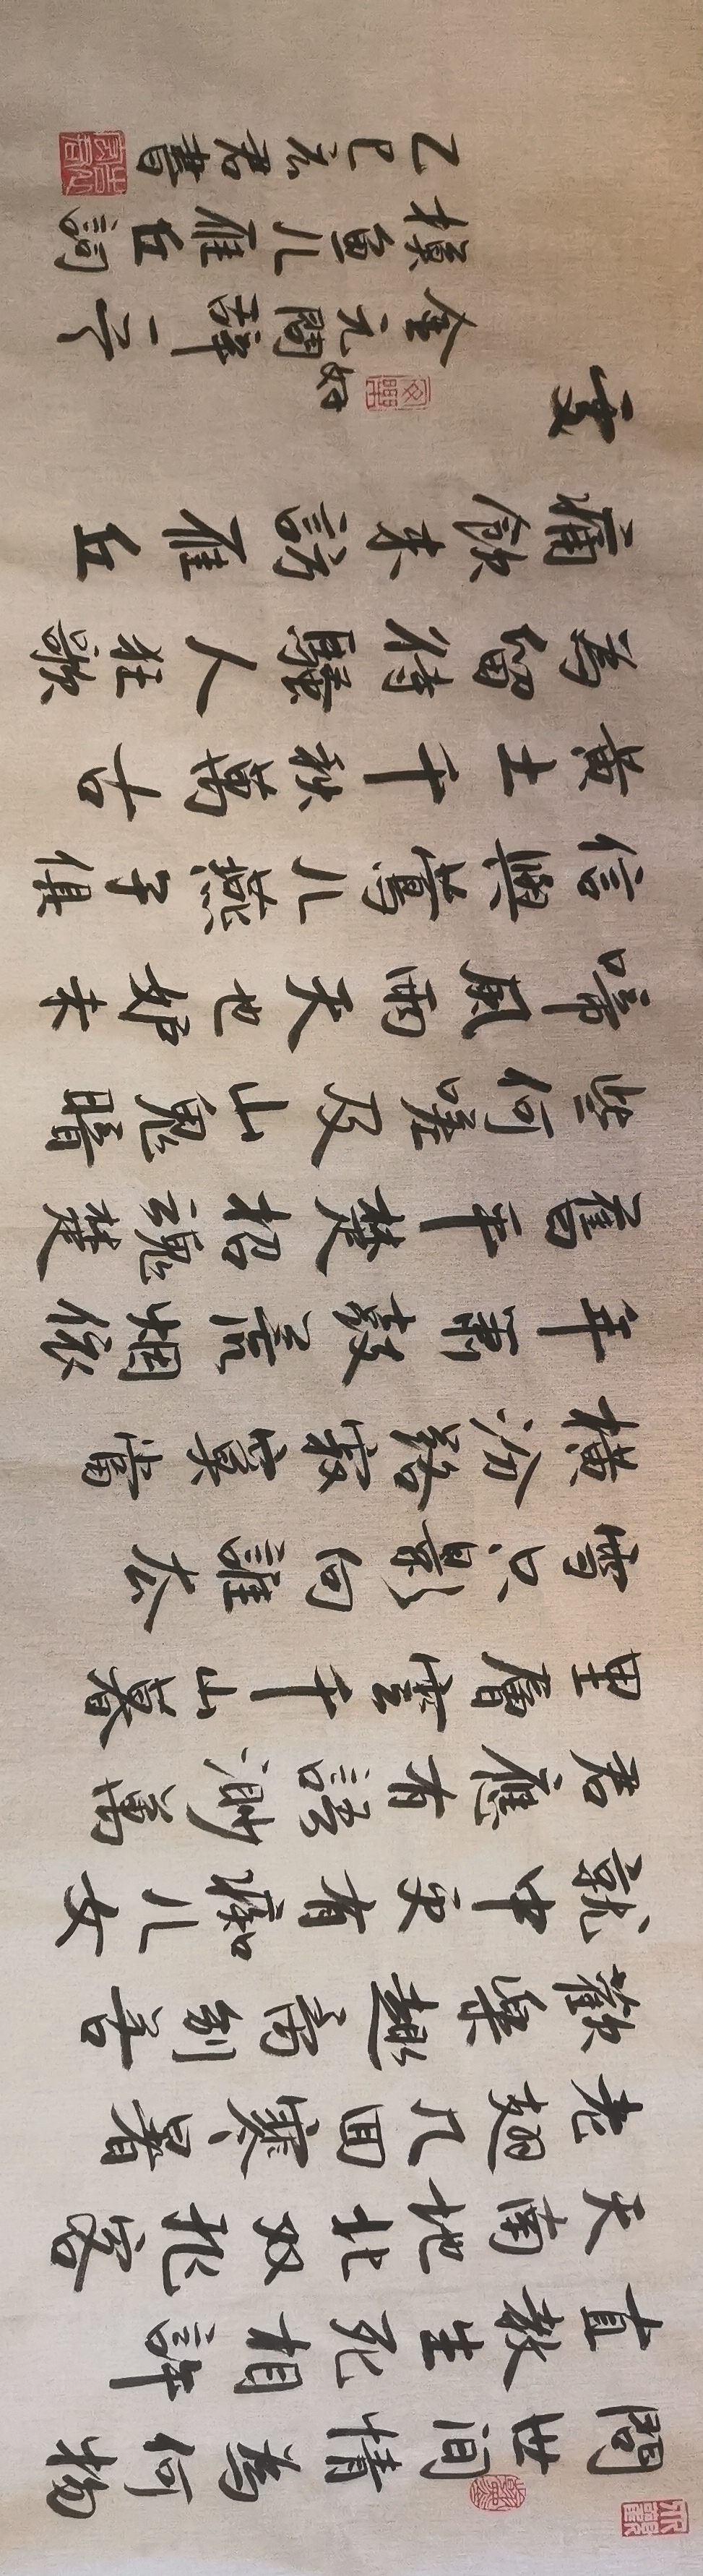 問世间情為何物
直教生死相許
天南地北双飛客
老翅几回寒暑
歡樂趣离别苦
就中更有痴儿女
君應有語渺萬
里層雲千山暮
雪只影向誰去
橫汾路寂寞當
年簫鼓荒烟依
舊平楚招魂楚
些何嗟及山鬼暗
啼風雨天也妒未
信與鶯儿燕子俱
黃土千秋萬古
為留待騷人狂歌
痛飲來訪雁丘
處
金元問 一
好
摸魚儿雁丘詞
乙巳 君書